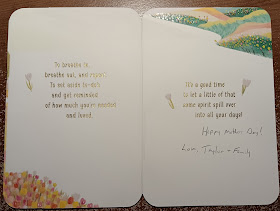 To breathe in,
breathe out, and repeat.
To set aside to-do's
and get reminded
of how much you're needed
and loved.
It's a good time
to let a little of that
same spirit spill over
into all your days!
Happy Mother's Day!
Love, Taylor + Family